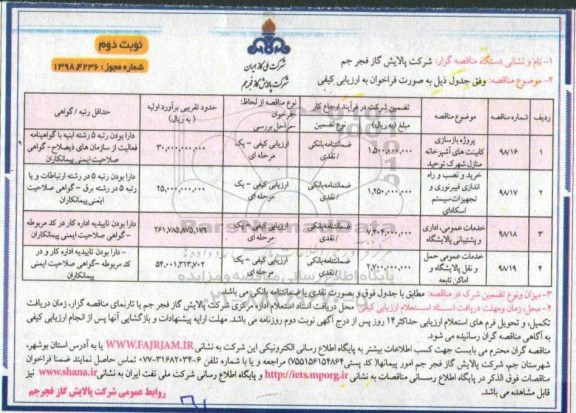 نوبت دوم
شماره مجوز: ۱۳۹۸.۴۲۳۶
شرکت ملی گاز ایران
شرکت پالایش گاز فجر جم
۱- نام و نشانی دستگاه مناقصه گزار: شرکت پالایش گاز فجر جم
۲- موضوع مناقصه: وفق جدول ذیل به صورت فراخوان به ارزیابی کیفی
ردیف
شماره مناقصه
موضوع مناقصه
تضمین شرکت در فرآیند ارجاع کار
مبلغ (به ریال)
نوع تضمین
نوع مناقصه از لحاظ:
- فراخوان
- مراحل بررسی
حدود تقریبی برآورد اولیه
(به ریال)
حداقل رتبه / گواهی
۱
۹۸/۱۶
پروژه بازسازی
کابینت های آشپزخانه
منازل شهرک توحید
۱,۵۰۰,۰۰۰,۰۰۰
ضمانتنامه بانکی
/ نقدی
ارزیابی کیفی - یک
مرحله ای
۳۰,۰۰۰,۰۰۰,۰۰۰
دارا بودن رتبه ۵ رشته ابنیه با گواهینامه
فعالیت از سازمان های ذیصلاح - گواهی
صلاحیت ایمنی پیمانکاران
۲
۹۸/۱۷
خرید و نصب و راه
اندازی فیبرنوری و
تجهیزات سیستم
اسکادای
۱,۲۵۰,۰۰۰,۰۰۰
ضمانتنامه بانکی
/ نقدی
ارزیابی کیفی - یک
مرحله ای
۲۵,۰۰۰,۰۰۰,۰۰۰
دارا بودن رتبه ۵ در رشته ارتباطات و یا
رتبه ۵ در رشته برق - گواهی صلاحیت
ایمنی پیمانکاران
۳
۹۸/۱۸
خدمات عمومی، اداری
و پشتیبانی پالایشگاه
ضمانتنامه بانکی
/ نقدی
ارزیابی کیفی - یک
مرحله ای
۲۶۱,۷۸۵,۸۷۵,۱۷۹
دارا بودن تاییدیه اداره کار در کد مربوطه
- گواهی صلاحیت ایمنی پیمانکاران
۴
۹۸/۱۹
خدمات عمومی حمل
و نقل پالایشگاه و
اماکن تابعه
۲,۷۰۰,۰۰۰,۰۰۰
ضمانتنامه بانکی
/ نقدی
ارزیابی کیفی - یک
مرحله ای
۵۴,۰۰۱,۳۱۳,۷۰۲
- دارا بودن تاییدیه اداره کار و در
کد مربوطه - گواهی صلاحیت ایمنی
پیمانکاران
۳- میزان ونوع تضمین شرکت در مناقصه: مطابق با جدول فوق و بصورت نقدی یا ضمانتنامه بانکی می باشد.
۴- محل، زمان ومهلت دریافت اسناد استعلام ارزیابی کیفی: محل دریافت اسناد استعلام اداره مرکزی شرکت پالایش گاز فجر جم یا تارنمای مناقصه گزار، زمان دریافت
تکمیل، و تحویل فرم های استعلام ارزیابی حداکثر ۱۴ روز پس از درج آگهی نوبت دوم روزنامه می باشد. مهلت ارایه پیشنهادات و بازگشایی آنها پس از انجام ارزیابی کیفی
به آگاهی مناقصه گران رسانیده می شود.
مناقصه گران محترم می بایست جهت کسب اطلاعات بیشتر به پایگاه اطلاع رسانی الکترونیکی این شرکت به نشانی WWW.FAJRJAM.IR یا به آدرس استان بوشهر،
شهرستان جم، شرکت پالایش گاز فجر جم امور پیمانها( کد پستی ۷۵۵۱۵۶۱۵۴۸۶۴) مراجعه و یا با شماره تلفن ۶-۰۷۷-۳۱۶۸۲۰۳۴ تماس حاصل نمایند ضمنا فراخوان
مناقصات فوق الذکر در پایگاه اطلاع رسانی مناقصات به نشانی http://iets.mporg.ir و پایگاه اطلاع رسانی شرکت ملی نفت ایران به نشانی www.shana.ir نیز
قابل مشاهده می باشد.
روابط عمومی شرکت پالایش گاز فجر جم